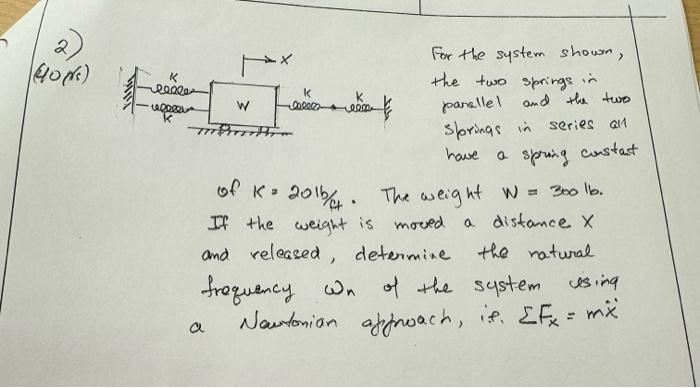 2)
(40 pts)
X
K
K
W
K
K
For the system shown,
the two springs in
parallel and the two
springs in series all
have a spring constant
of K = 20 lb/ft. The weight W = 300 lb.
If the weight is moved a distance X
and released, determine the natural
frequency ωn of the system using
a Newtonian approach, i.e. ΣFx = mẍ